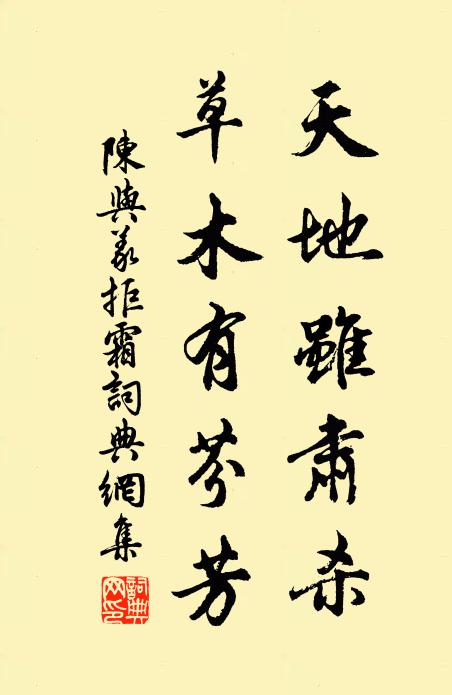 天地雖肅杀
草木有芬芳
陳與義拒霜詞典網集
詞典网印